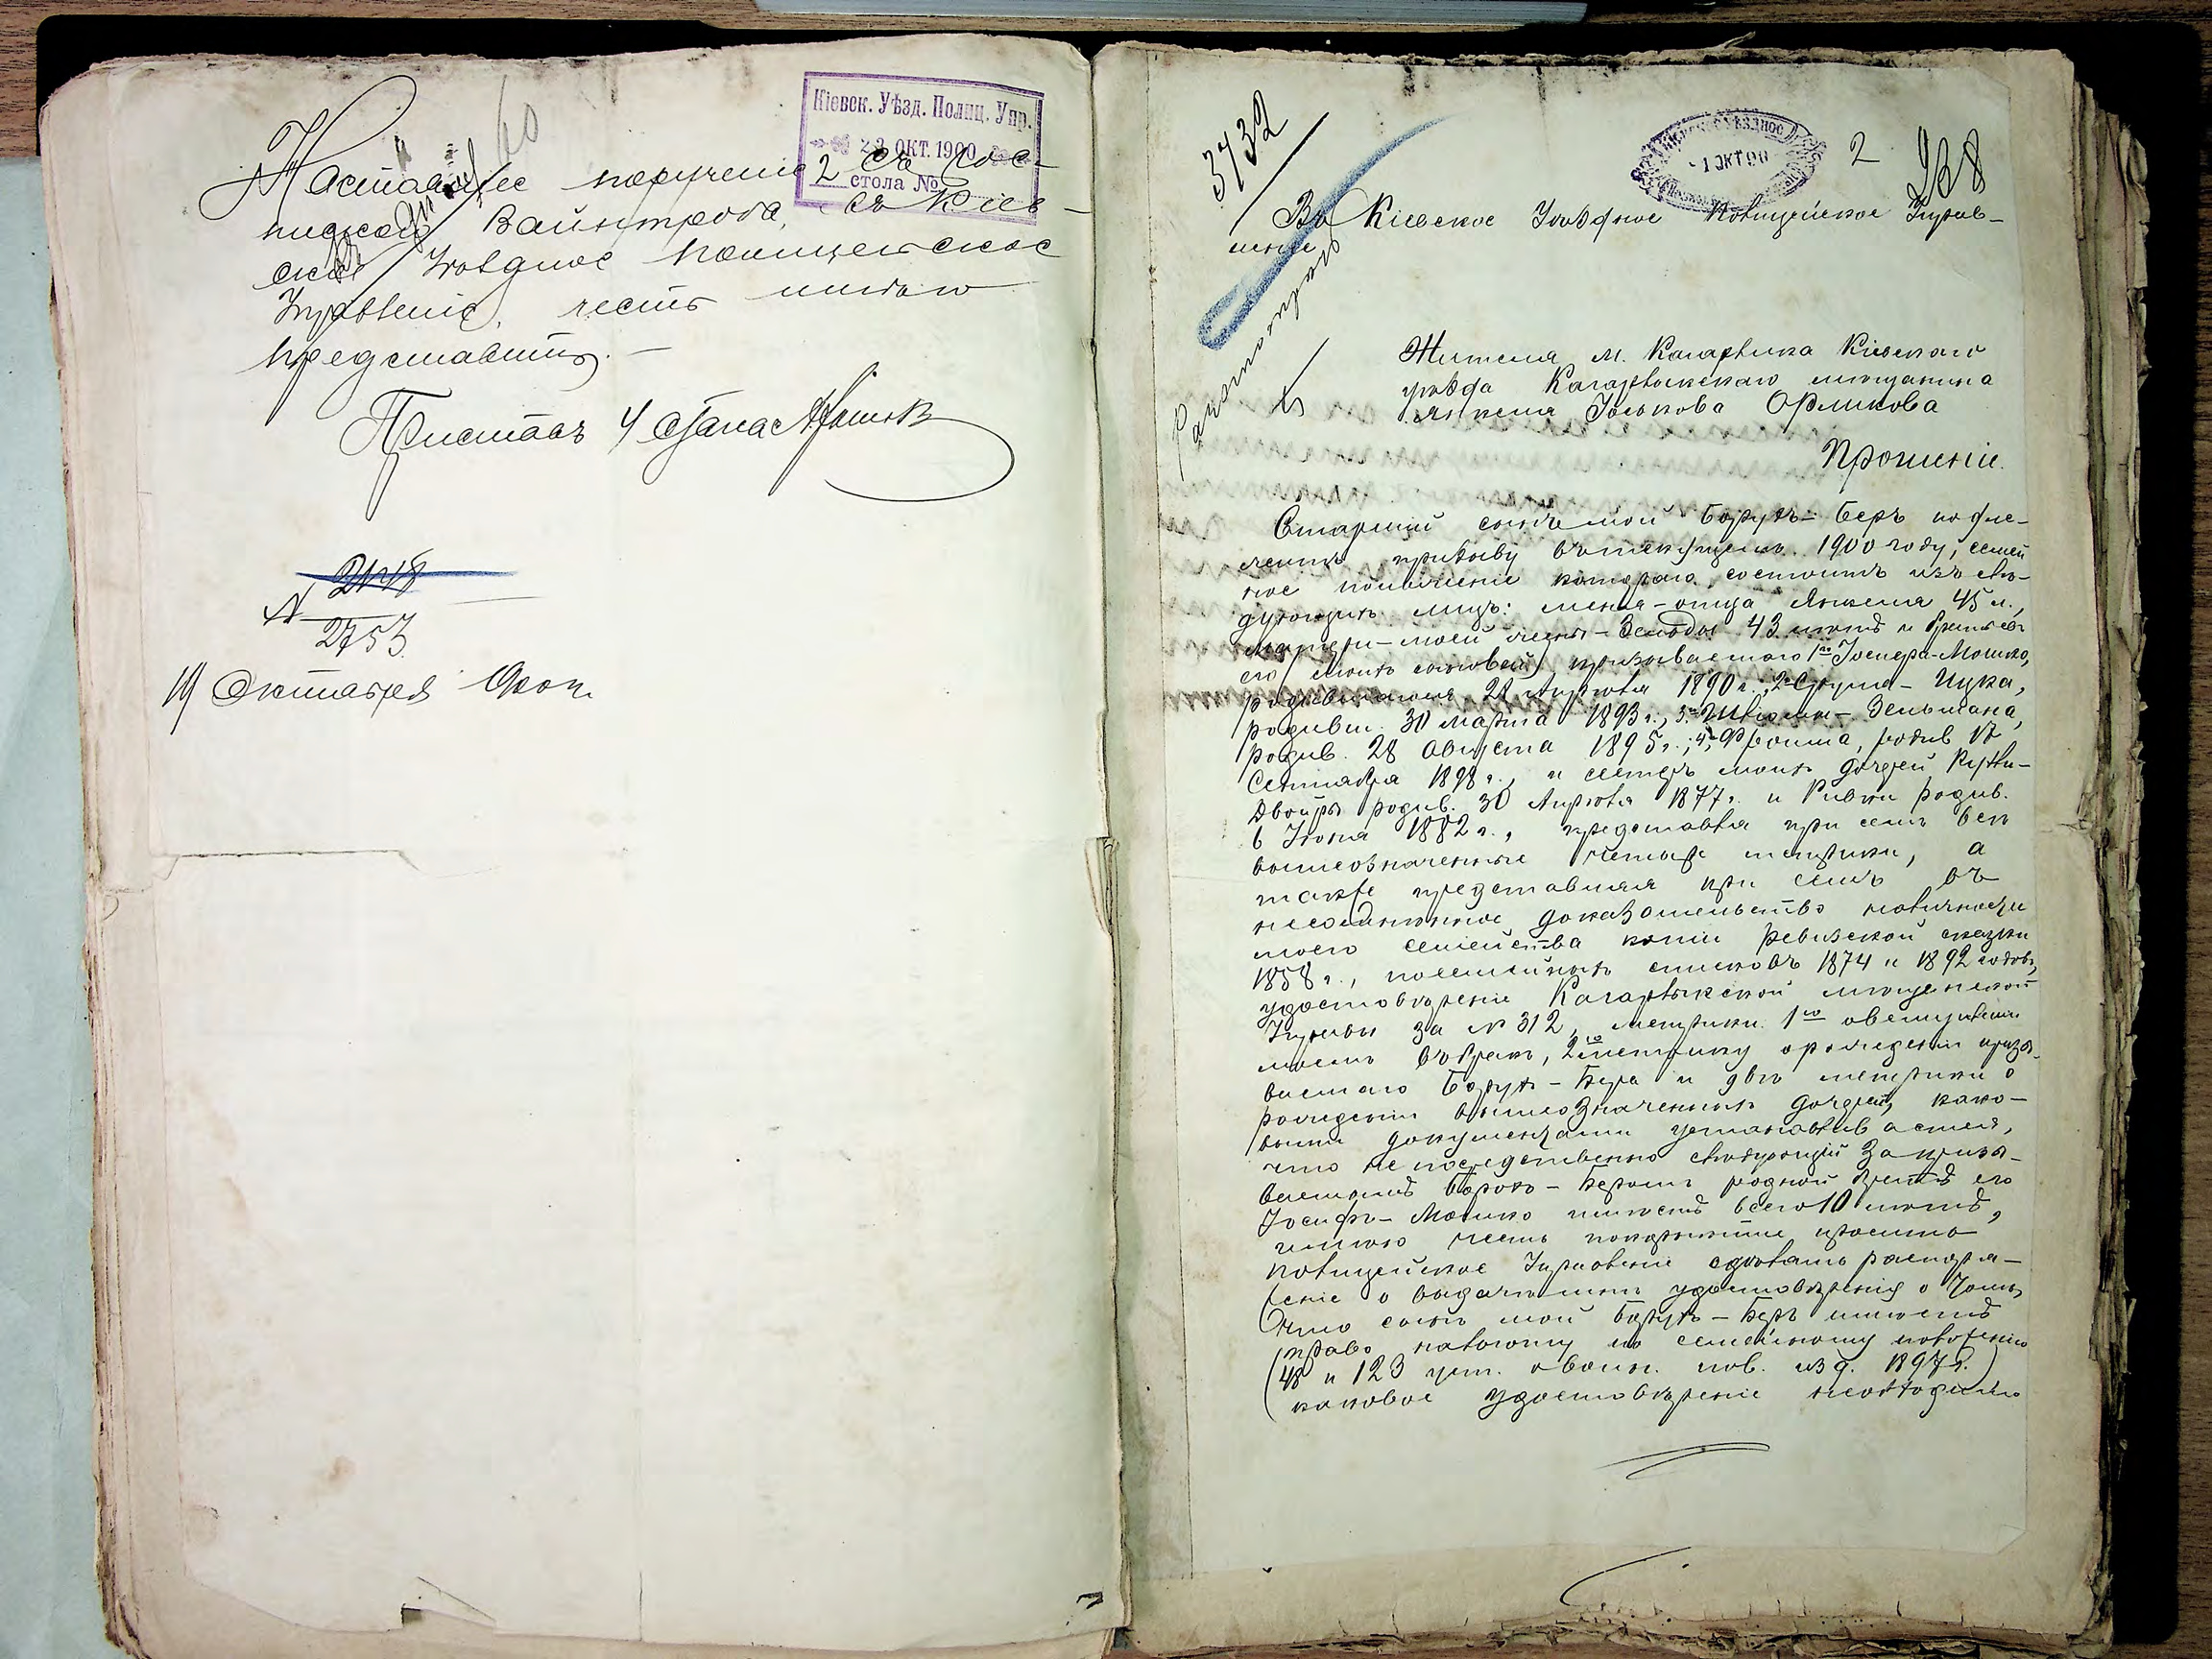 Кіевск. Уѣзд. Полиц. Упр.
23 ОКТ. 1900
2 стола №
Настоящее порученіе съ рос-
пиской Вайнтроба, въ Кіев-
ское Уѣздное Полицейское
Управленіе, честь имѣю
представить.
Приставъ 4 стана
2748
№ 2753
19 Октября 900 г.
3732
1 ОКТ 900
2
268
Въ Кіевское Уѣздное Полицейское Управ-
леніе
Жителя м. Кагарлика Кіевскаго
уѣзда Кагарлыкскаго мѣщанина
Янкеля Іоськова Орликова
Прошеніе.
Старшій сынъ мой Борухъ-Беръ подле-
житъ призыву въ текущемъ 1900 году, семей
ное положеніе котораго состоитъ изъ слѣ-
дующихъ лицъ: меня-отца Янкеля 45 л.,
матери-моей жены- 43 лѣтъ и братьевъ
его (моихъ сыновей) призываемаго 1го Іосифа-Мошко,
родившагося 21 Апрѣля 1890 г., 2 Сруля-Ицка,
родивш. 30 марта 1893 г., 3. Шлемы-Зельмана,
родив. 28 Августа 1895 г., 4, Фроима, родив 17
Сентября 1898 г., и сестеръ моихъ дочерей Рухли-
Двойры родив. 30 Апрѣля 1877 г. и Ривки родив.
6 Іюня 1882 г., представля при семъ всѣ
вышеозначенные четыре метрики, а
также представляя при семъ въ
несомнѣнное доказательство наличности
моего семейства копіи ревизской сказки
1858 г., посемейныхъ списковъ 1874 и 1892 годовъ,
удостовѣреніе Кагарлыкской мѣщанской
Управы за № 312, метрики 1ю о вступленіи
моемъ въ бракъ, 2ю метрику о рожденіи призы-
ваемаго Борухъ-Бера и двѣ метрики о
рожденіи вышеозначенныхъ дочерей, како-
выми документами устанавливается,
что непосредственно слѣдующій за призы-
ваемымъ Борохъ-Беромъ родной братъ его
Іосифъ-Мошко имѣетъ всего 10 лѣтъ,
имѣю честь покорнѣйше просить
полицейское Управленіе сдѣлать распоря-
женіе о выдачѣ мнѣ удостовѣренія о томъ,
что сынъ мой Борухъ-Беръ имѣетъ
право на льготу по семейному положенію
(48 и 123 уст. о воин. пов. изд. 1897 г.)
каковое удостовѣреніе необходимо